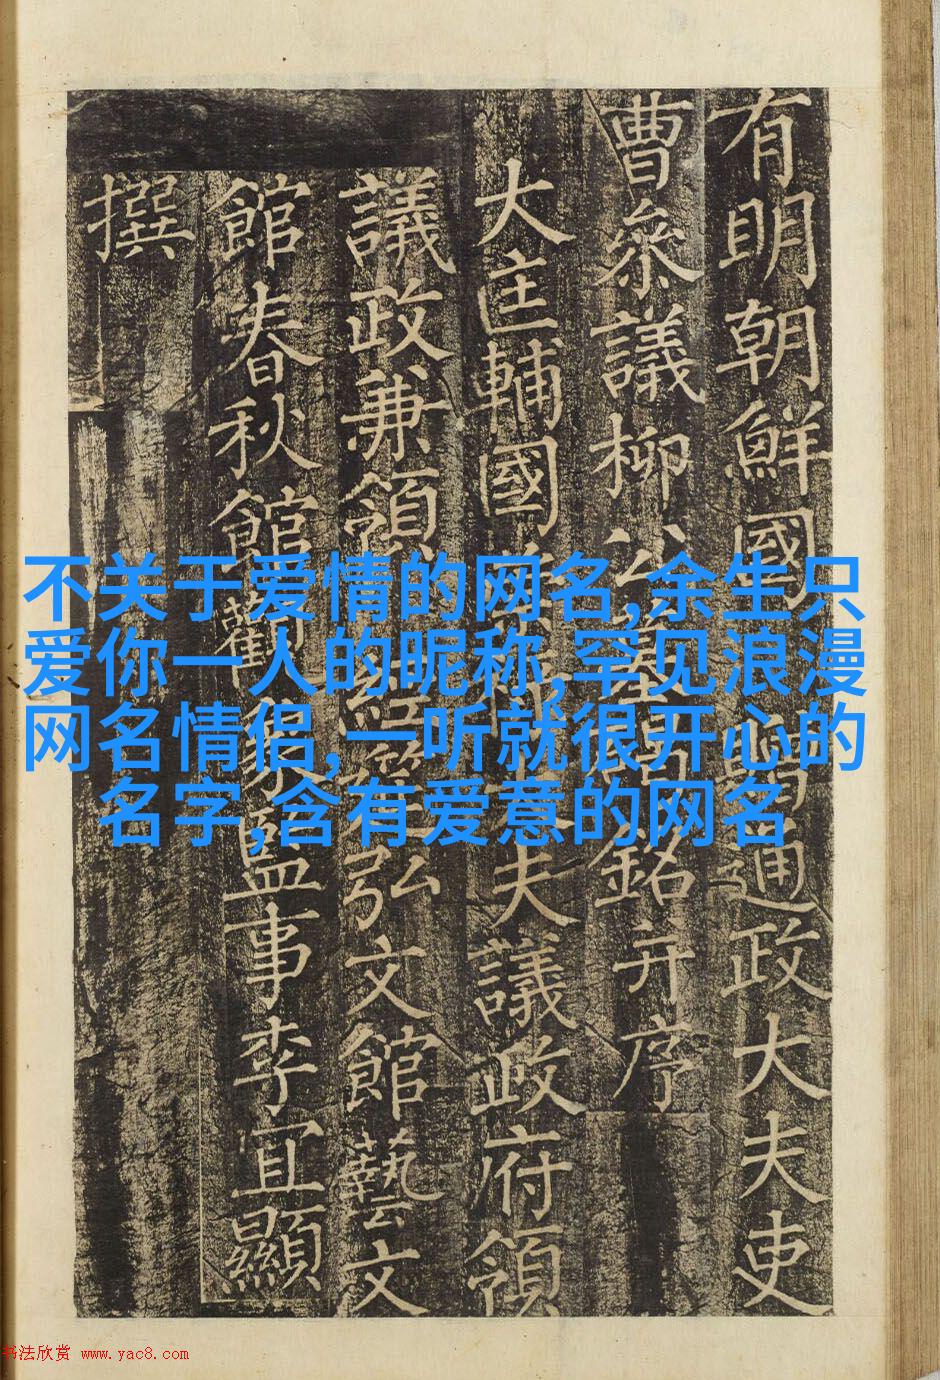 有明朝鮮國 贈通政大夫吏
曹叅議柳公墓碣銘并序
大匡輔國崇祿大夫議政府領
議政兼領經筵弘文館藝文
館春秋館觀象監事李宜顯
撰
不关于爱情的网名,余生只
爱你一人的昵称,罕见浪漫
网名情侣,一听就很开心的
名字,含有爱意的网名
书法欣赏 www.yac8.com